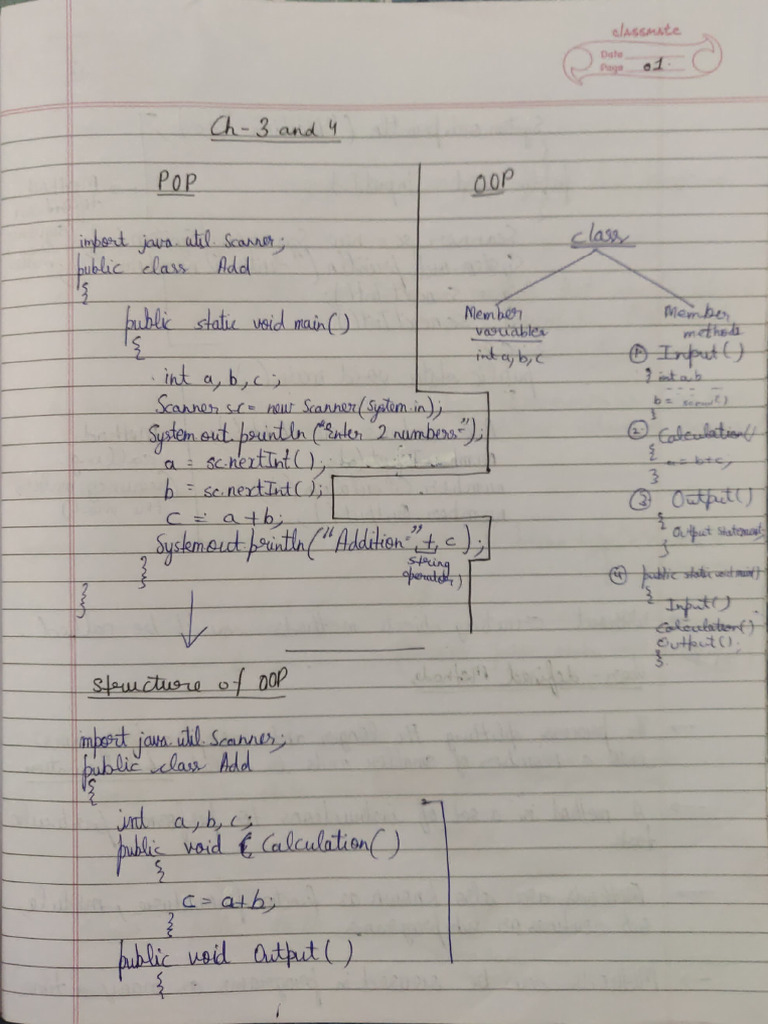 classmate
Date
Page 01.
Ch-3 and 4
POP
import java.util.Scanner;
public class Add
{
public static void main()
{
int a, b, c ;
Scanner sc = new Scanner(System.in);
System.out.println ("Enter 2 numbers=");
a = sc.nextInt();
b = sc.nextInt();
c = a+b;
System.out.println("Addition="+ c);
string
operator
}
}
OOP
class
Member
variables
int a, b, c
Member
methods
① Input()
{ int a,b
b =
}
② Calculation()
{
= b+c;
}
③ Output()
{
Output statement;
}
④ public static void main()
{
Input()
Calculation()
Output();
}
Structure of OOP
import java.util.Scanner;
public class Add
{
int a, b, c;
public void Calculation()
{
c = a+b;
}
public void Output()
{